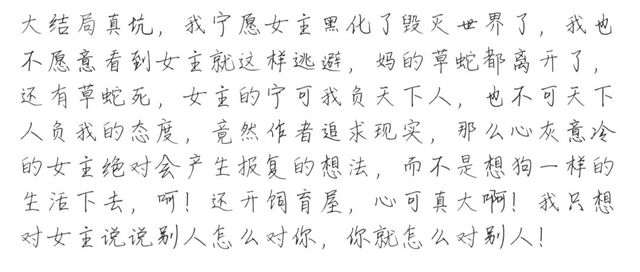 大结局真坑，我宁愿女主黑化了毁灭世界了，我也
不愿意看到女主就这样逃避，妈的草蛇都离开了，
还有草蛇死，女主的宁可我负天下人，也不可天下
人负我的态度，竟然作者追求现实，那么心灰意冷
的女主绝对会产生报复的想法，而不是想狗一样的
生活下去，呵！还开饲育屋，心可真大啊！我只想
对女主说说别人怎么对你，你就怎么对别人！